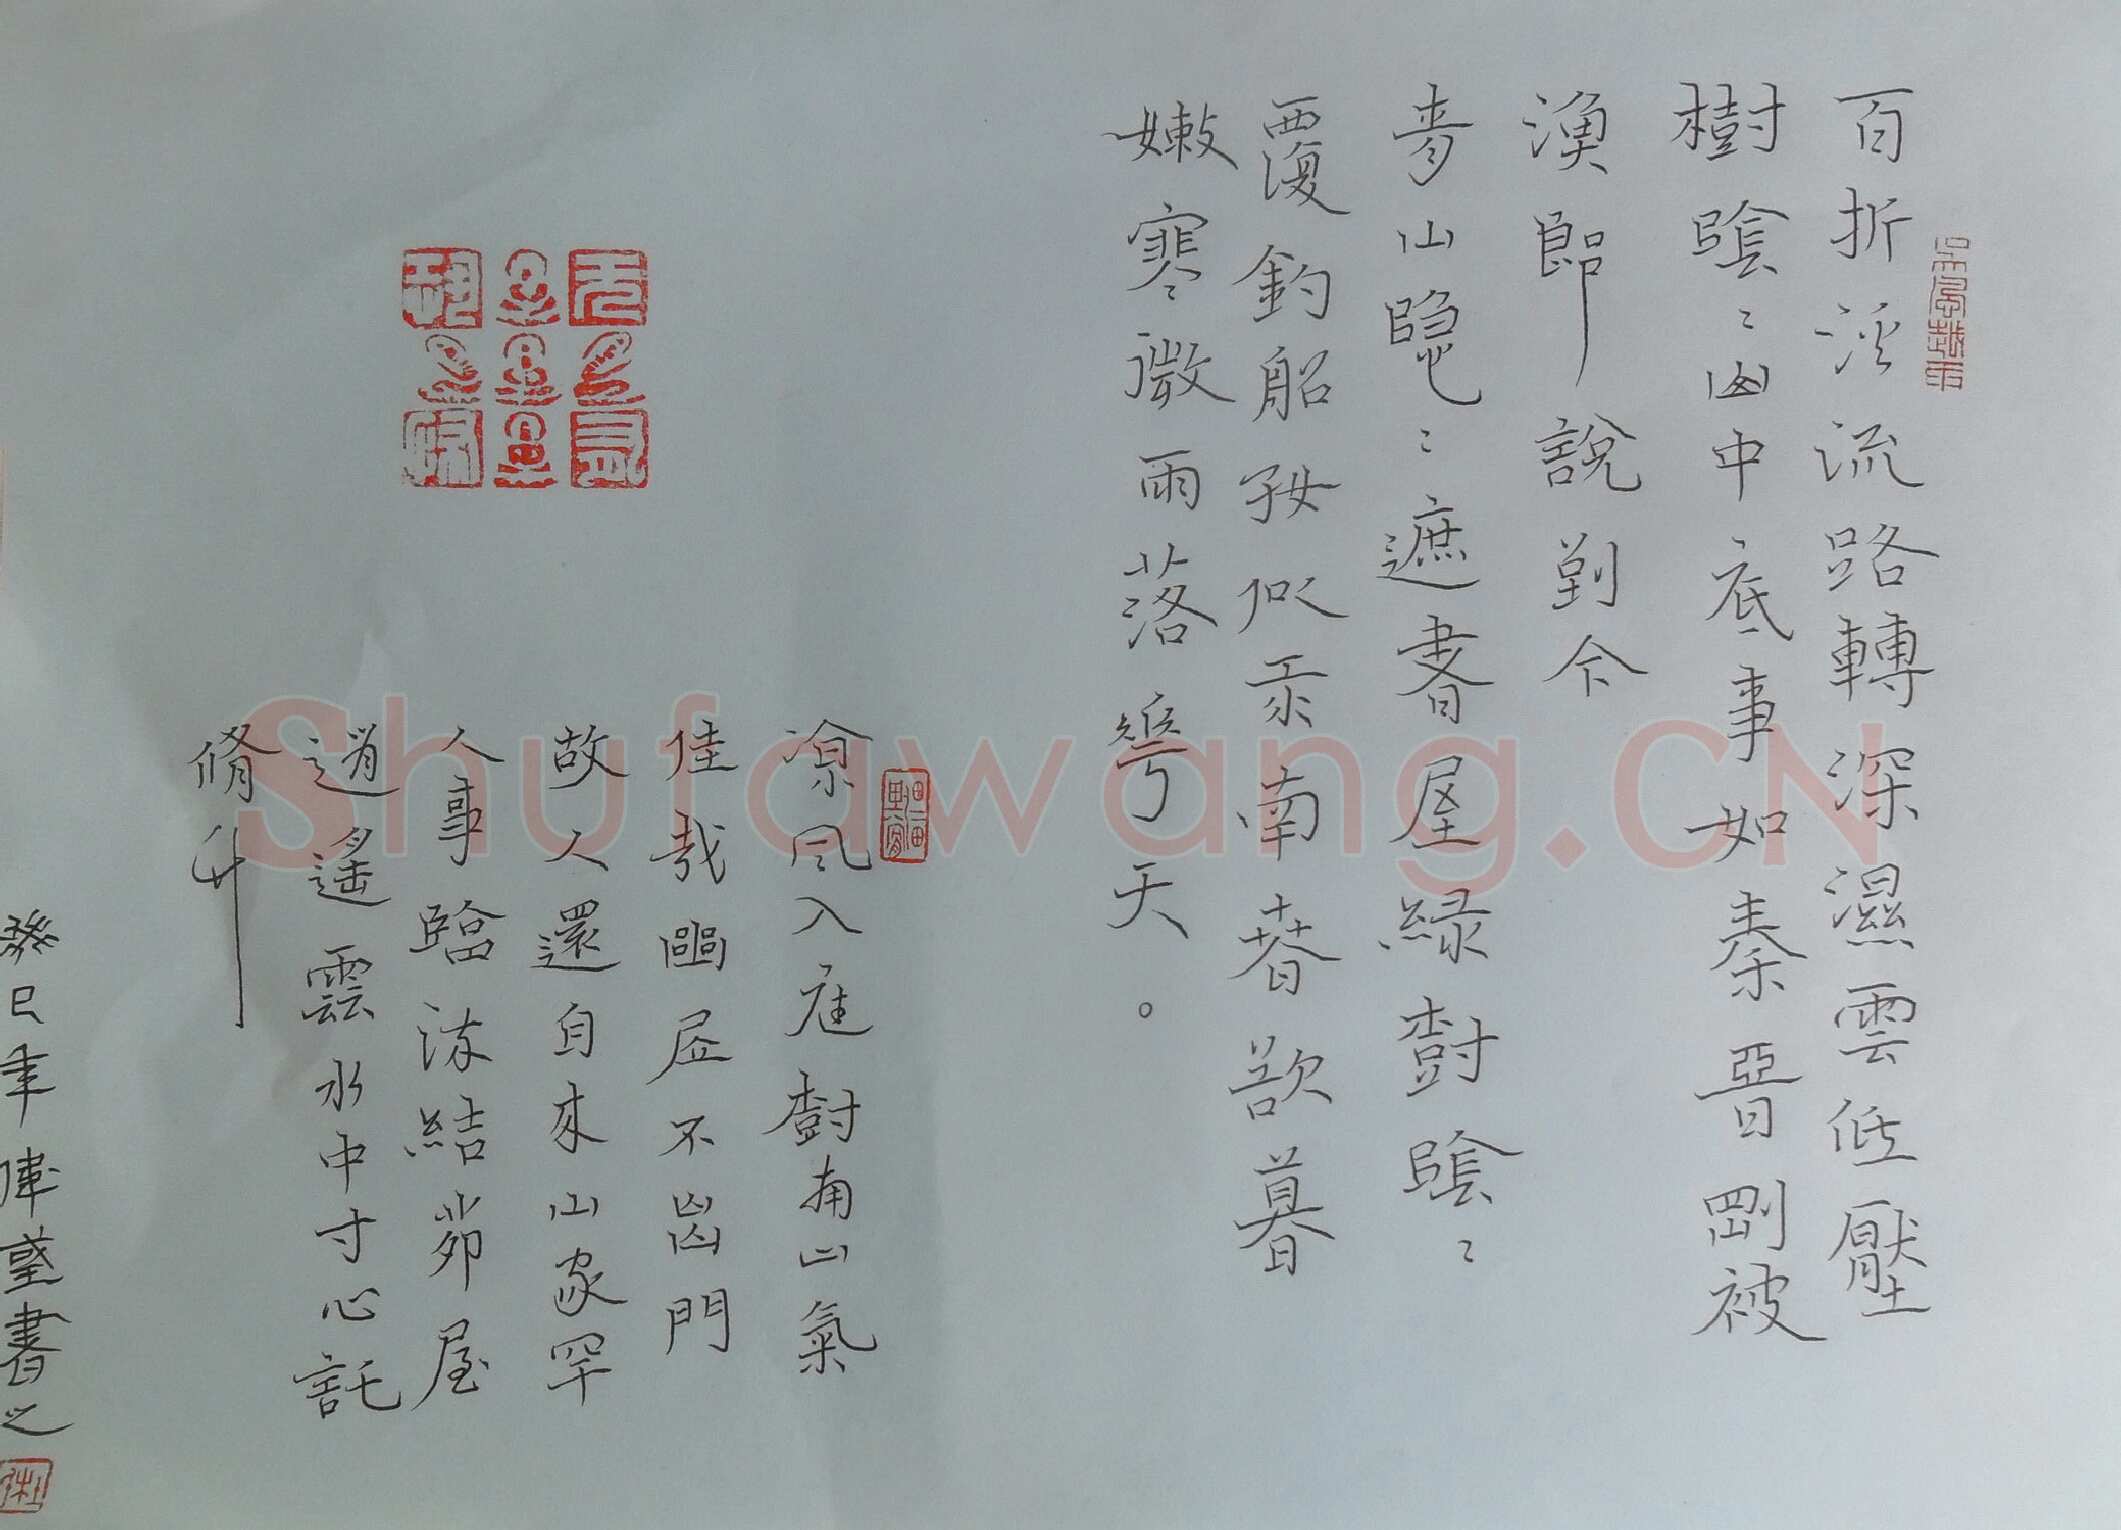 百折溪流路轉深濕雲低壓
樹陰々山中底事如秦晉剛被
漁郎說到今
青山隱々遮書屋綠樹陰々
覆釣船好似水南春欲暮
嫩寒微雨落花天。
涼風入庭樹南山氣
佳哉幽居不出門
故人還自來山家罕
人事臨流結茆屋
逍遙雲水中寸心託
脩竹
癸巳年偉望書之
Shufawang.CN